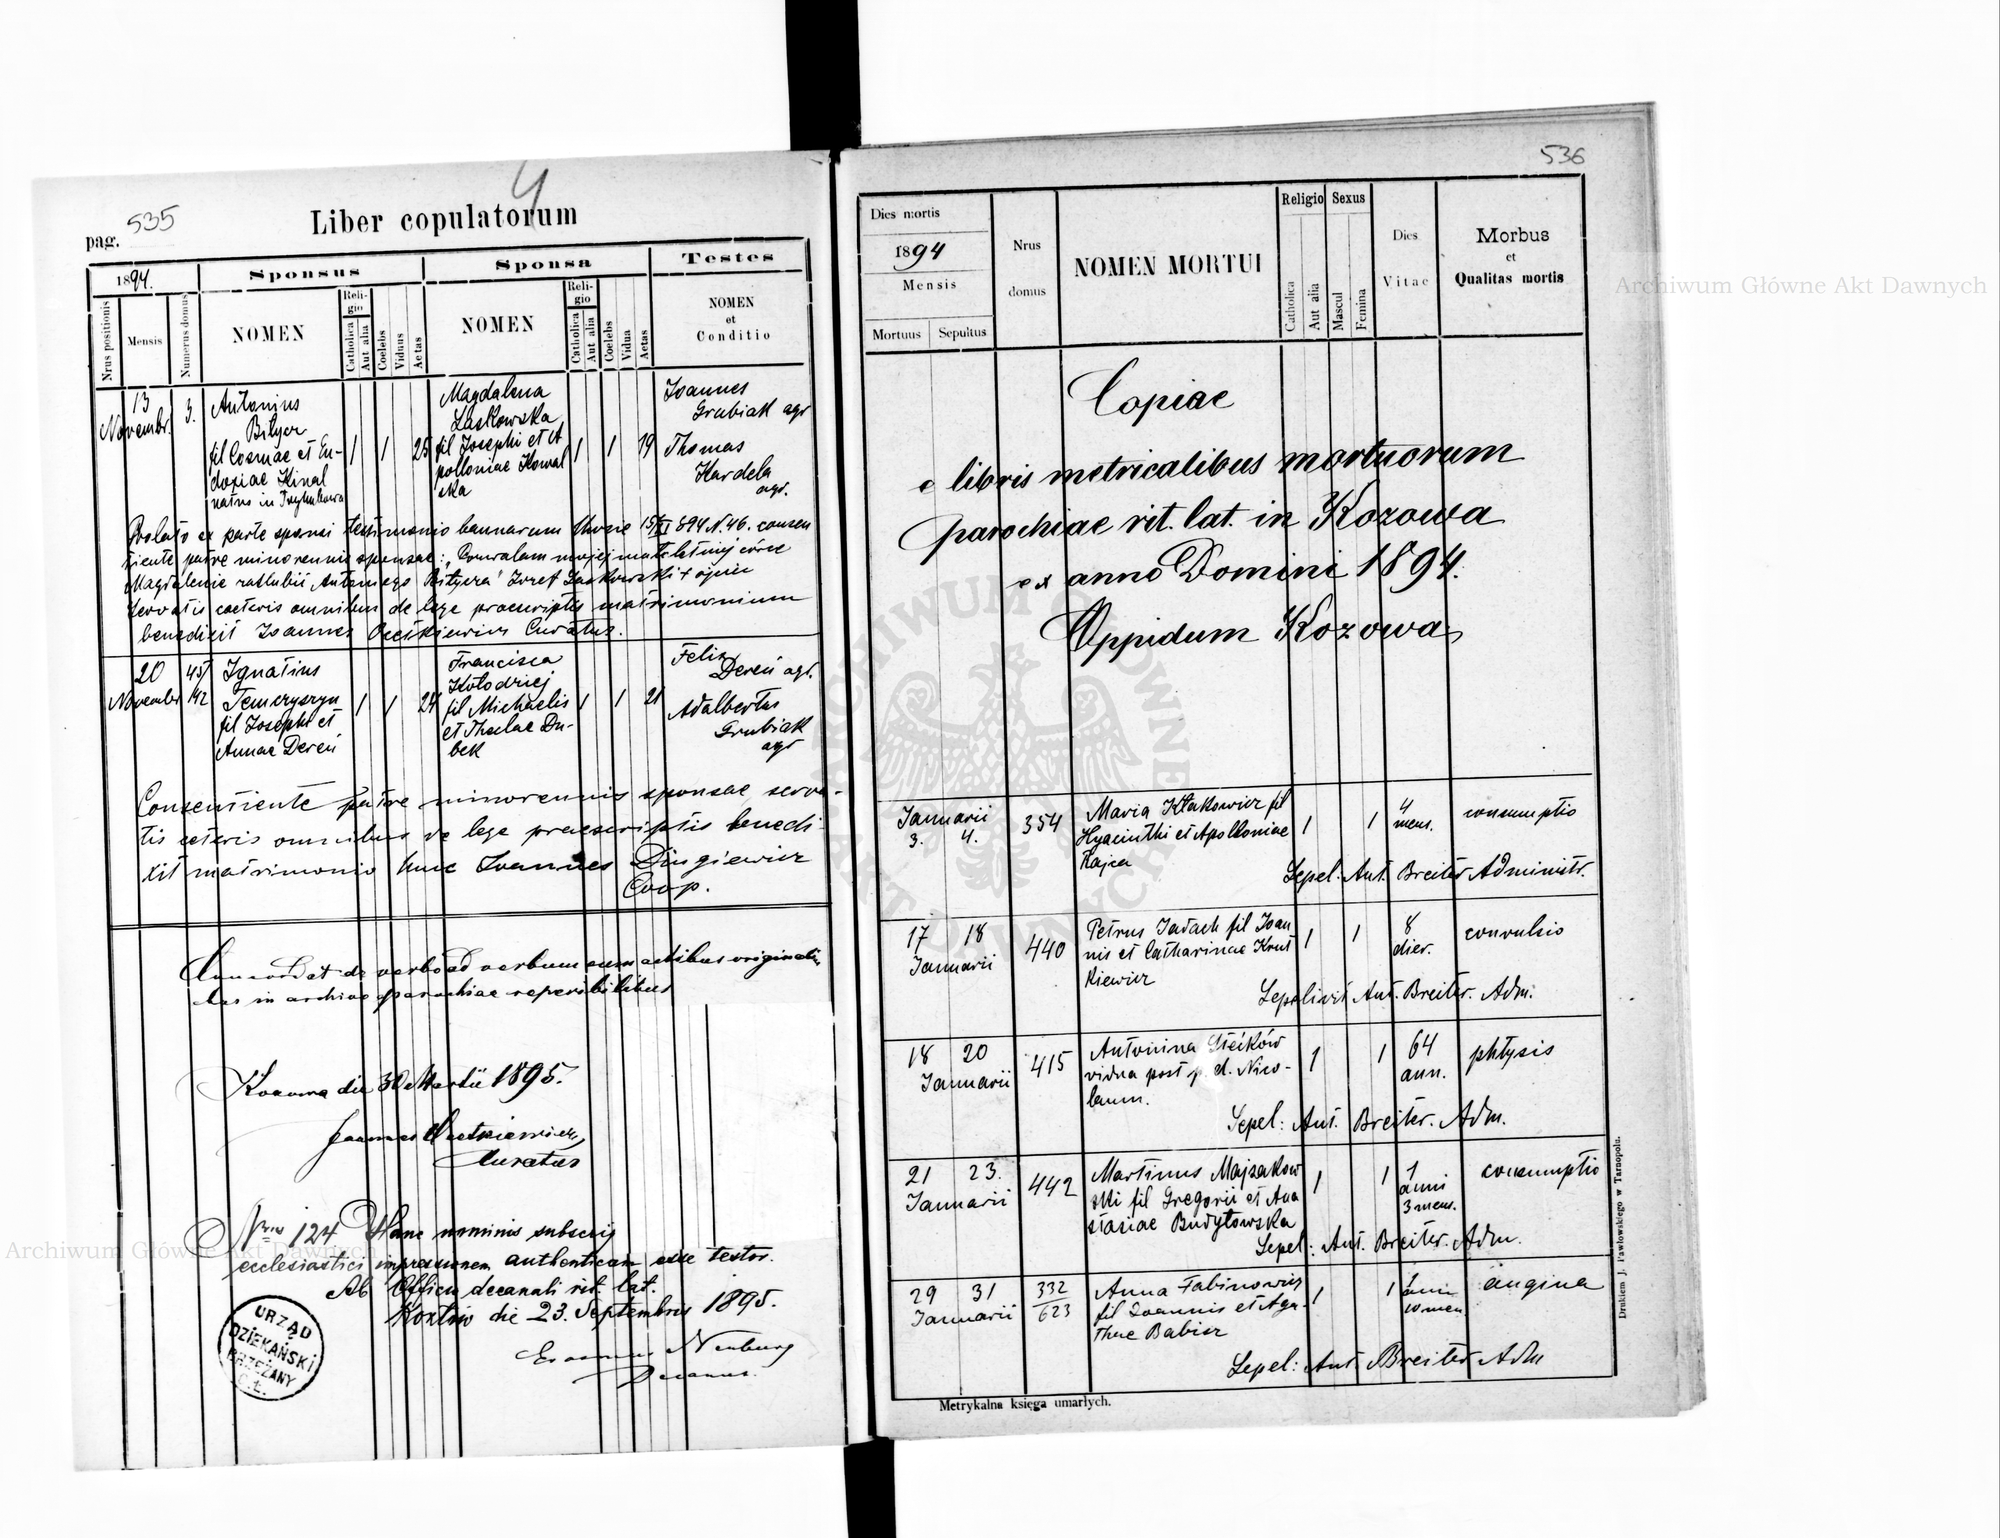 535
4
pag.
Liber copulatorum
1894.
Sponsus
Sponsa
Testes
Nrus positionis
Mensis
Numerus domus
NOMEN
Religio
Catholica
Aut alia
Coelebs
Viduus
Aetas
NOMEN
Religio
Catholica
Aut alia
Coelebs
Vidua
Aetas
NOMEN
et
Conditio
13
Novembr.
3.
Antonius
fil Cosmae et Eu-
doxiae Kinal
natus in
1
1
25
Magdalena
Laskowska
fil Josephi et A
polloniae Kowal
ska
1
1
19
Joannes
Grubiak agr
Thomas
Kardela
agr.
ex parte sponsi testimonio bannorum 15/XI 894 N. 46. consen
tiente patre minorennis sponsae:
Magdalenie Antoniego Józef Laskowski + ojciec
servatis coeteris omnibus de lege praescriptis matrimonium
benedixit Joannes Curatus.
20
November
45/
142
Ignatius
Temczyszyn
fil Josephi et
Annae Dereń
1
1
24
Francisca
Kołodziej
fil Michaelis
et Theclae Du-
bek
1
1
21
Felix
Dereń agr.
Adalbertus
Grubiak
agr
Consentiente patre minorennis sponsae serva-
tis ceteris omnibus de lege praescriptis benedi
xit matrimonio hunc Joannes
Coop.
Concordat de verbo ad verbum cum actibus originali
bus in archivo parochiae reperibilibus
Kozowa die 30 Martii 1895.
Joannes
Curatus
Nrus 124 Hanc nominis subscrip
ecclesiastici impressionem authenticam esse testor.
Ab Officio decanali rit. lat.
Kozłów die 23. Septembris 1895.
Erasmus Neuburg
Decanus.
URZĄD
DZIEKAŃSKI
BRZEŻANY
O.Ł.
536
Dies mortis
1894
Mensis
Mortuus
Sepultus
Nrus
domus
NOMEN MORTUI
Religio
Catholica
Aut alia
Sexus
Mascul
Femina
Dies
Vitae
Morbus
et
Qualitas mortis
Copiae
e libris metricalibus mortuorum
parochiae rit. lat. in Kozowa
ex anno Domini 1894.
Oppidum Kozowa
Januarii
3. 4.
354
Maria Kłakowicz fil
Hyacinthi et Apolloniae
Kajca
1
1
4
mens.
consumptio
Sepel: Ant. Breiter Administr.
17 18
Januarii
440
Petrus Jadach fil Joan
nis et Catharinae Krut
kiewicz
1
1
8
dier.
convulsio
Sepelivit Ant. Breiter. Adm.
18 20
Januarii
415
Antonina
vidua post p. d. Nico-
laum.
1
1
64
ann.
phtysis
Sepel: Ant. Breiter. Adm.
21 23.
Januarii
442
Martinus Majzakow
ski fil Gregorii et Ana
stasiae Budyłowska
1
1
1
anni
3 mens.
consumptio
Sepel: Ant. Breiter. Adm.
29 31
Januarii
332
623
Anna Fabinowicz
fil Joannis et Aga-
thae Babisz
1
1
1
anni
10 men
angina
Sepel: Ant. Breiter Adm
Metrykalna księga umarłych.
Drukiem J. Pawłowskiego w Tarnopolu.
Archiwum Główne Akt Dawnych
Archiwum Główne Akt Dawnych
ARCHIWUM GŁÓWNE AKT DAWNYCH